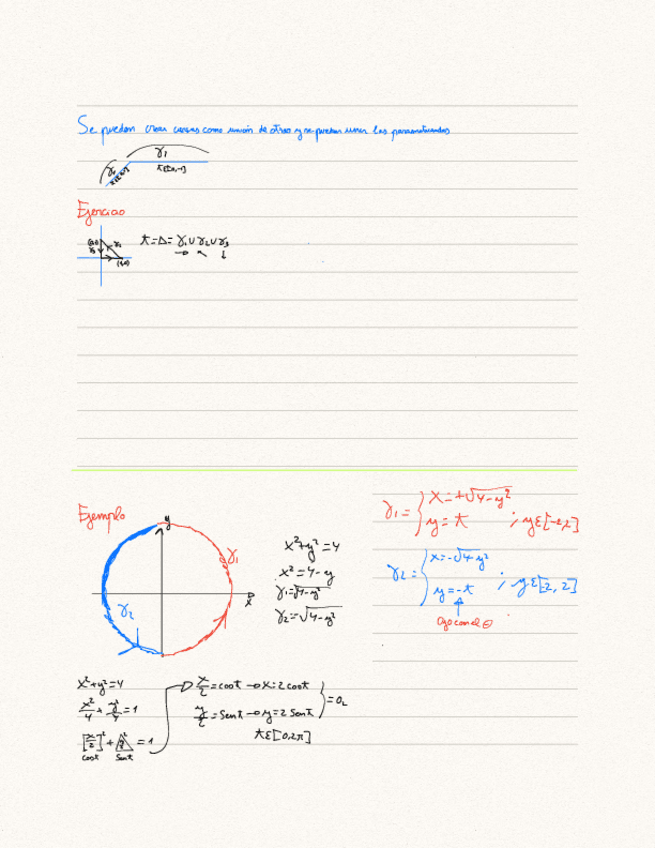 Se pueden crear curvas como unión de otras y se pueden unir las parametrizadas
γ1
Ejercicio
t = Δ = γ1 ∪ γ2 ∪ γ3
→ ↖ ↓
(1,0)
Ejemplo
y
x
γ1
γ2
x²+y²=4
x²=4-y
γ1=√4-y²
γ2=√4-y²
γ1 = { x=+√4-y²
y = t ; y∈[-2,2]
γ2 = { x=-√4-y²
y=-t ; y∈[2,2]
Ojo con el ⊖
x²+y²=4
x²/4 + y²/4 = 1
[x/2]² + [y/2]² = 1
cost sent
x/2 = cost → x=2cost
y/2 = sent → y=2sent
t∈[0,2π]